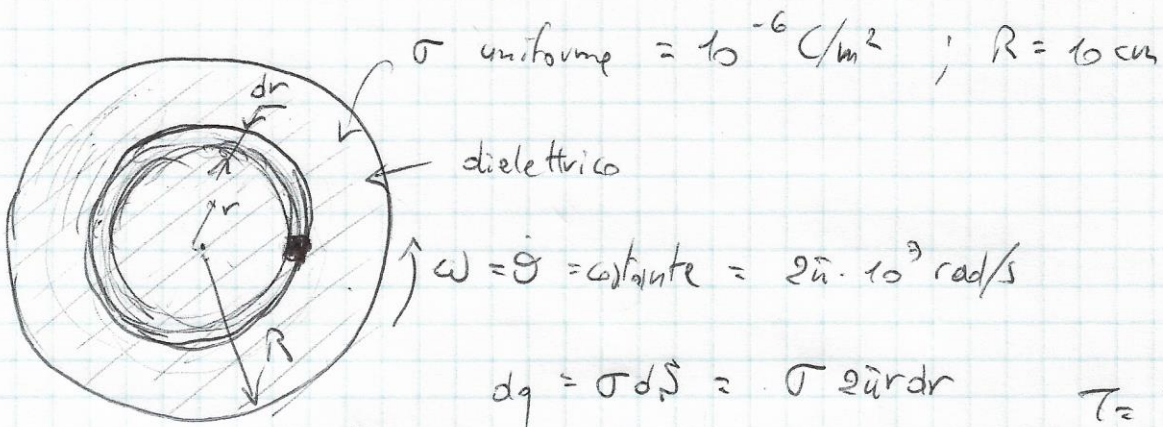 σ uniforme = 10⁻⁶ C/m² ; R = 10 cm
dr
dielettrico
r
ω = θ̇ = costante = 2π · 10³ rad/s
R
dq = σ dS = σ 2π r dr T=